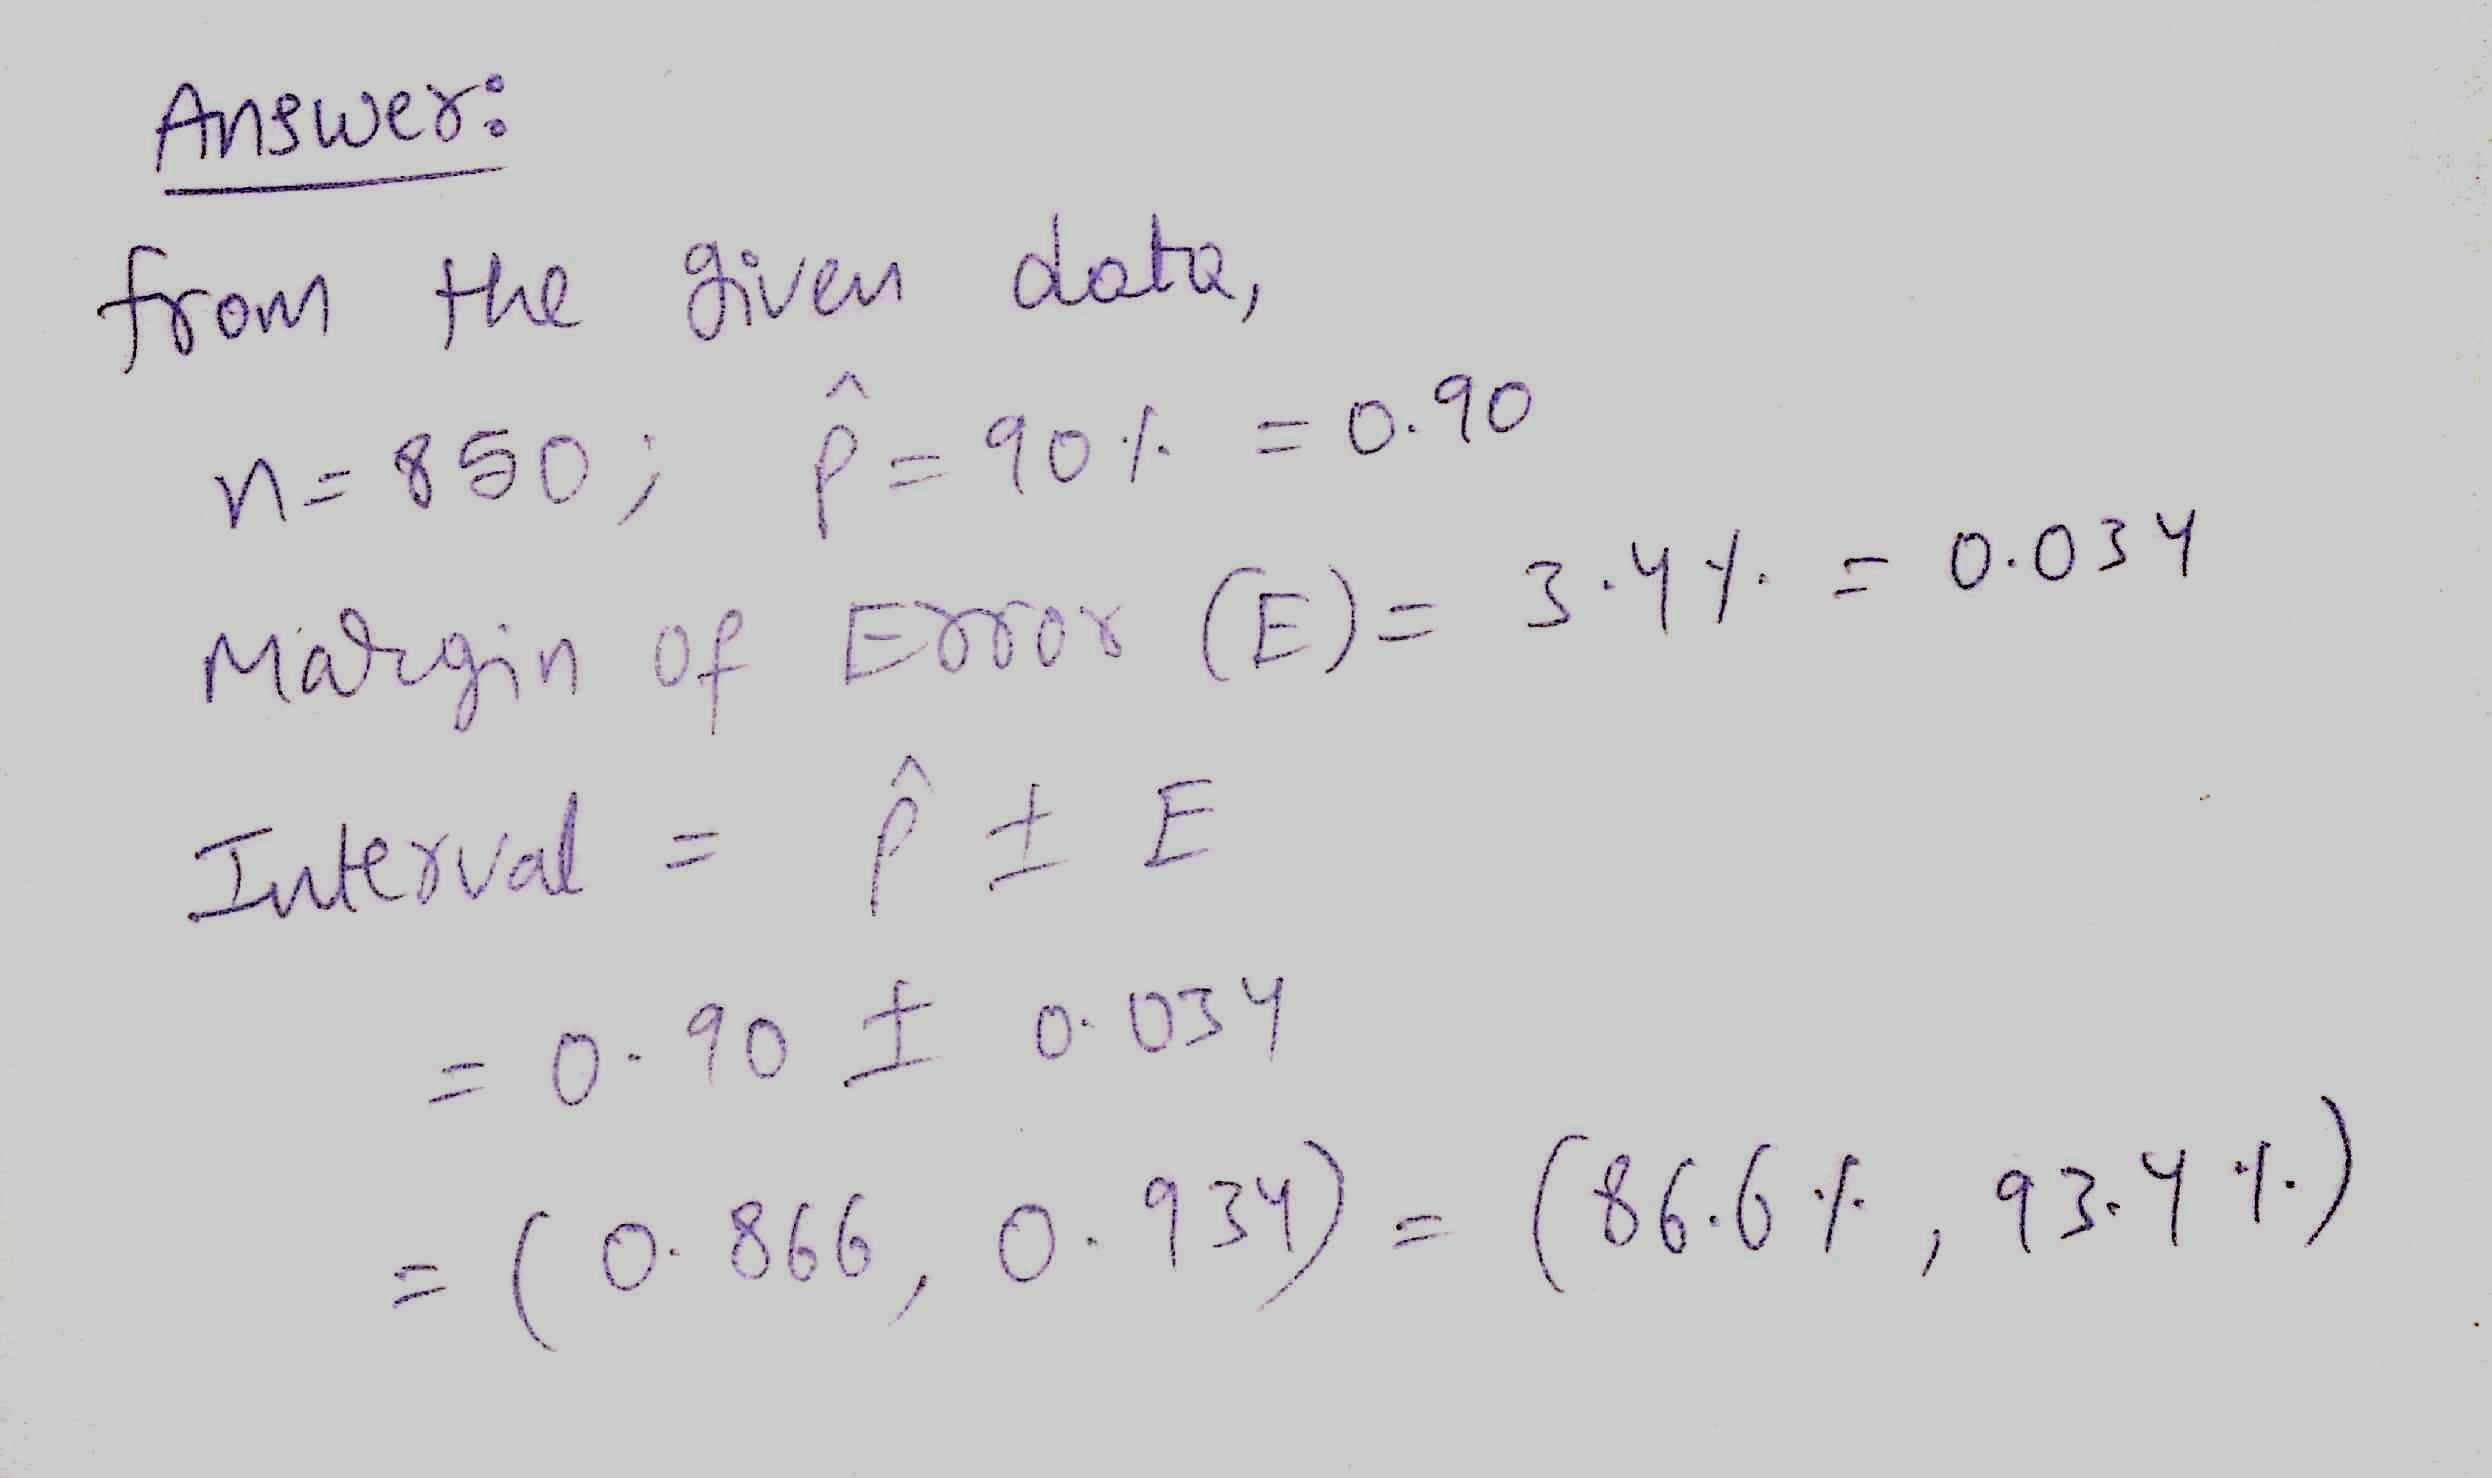 Answer:
from the given data,
n = 850; p̂ = 90% = 0.90
Margin of Error (E) = 3.4% = 0.034
Interval = p̂ ± E
= 0.90 ± 0.034
= (0.866, 0.934) = (86.6%, 93.4%)